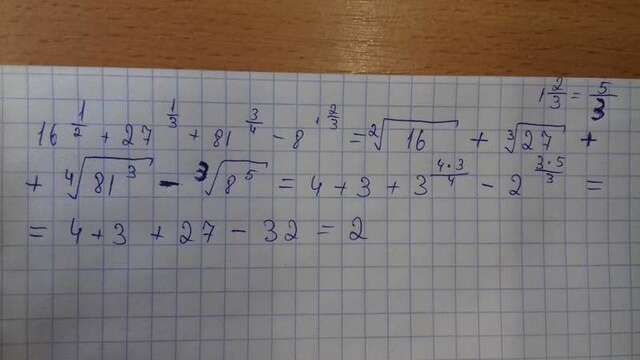 1 2/3 = 5/3
16^{1/2} + 27^{1/3} + 81^{3/4} - 8^{1 2/3} = ²√16 + ³√27 +
+ ⁴√81³ - ³√8⁵ = 4 + 3 + 3^{4·3/4} - 2^{3·5/3} =
= 4 + 3 + 27 - 32 = 2